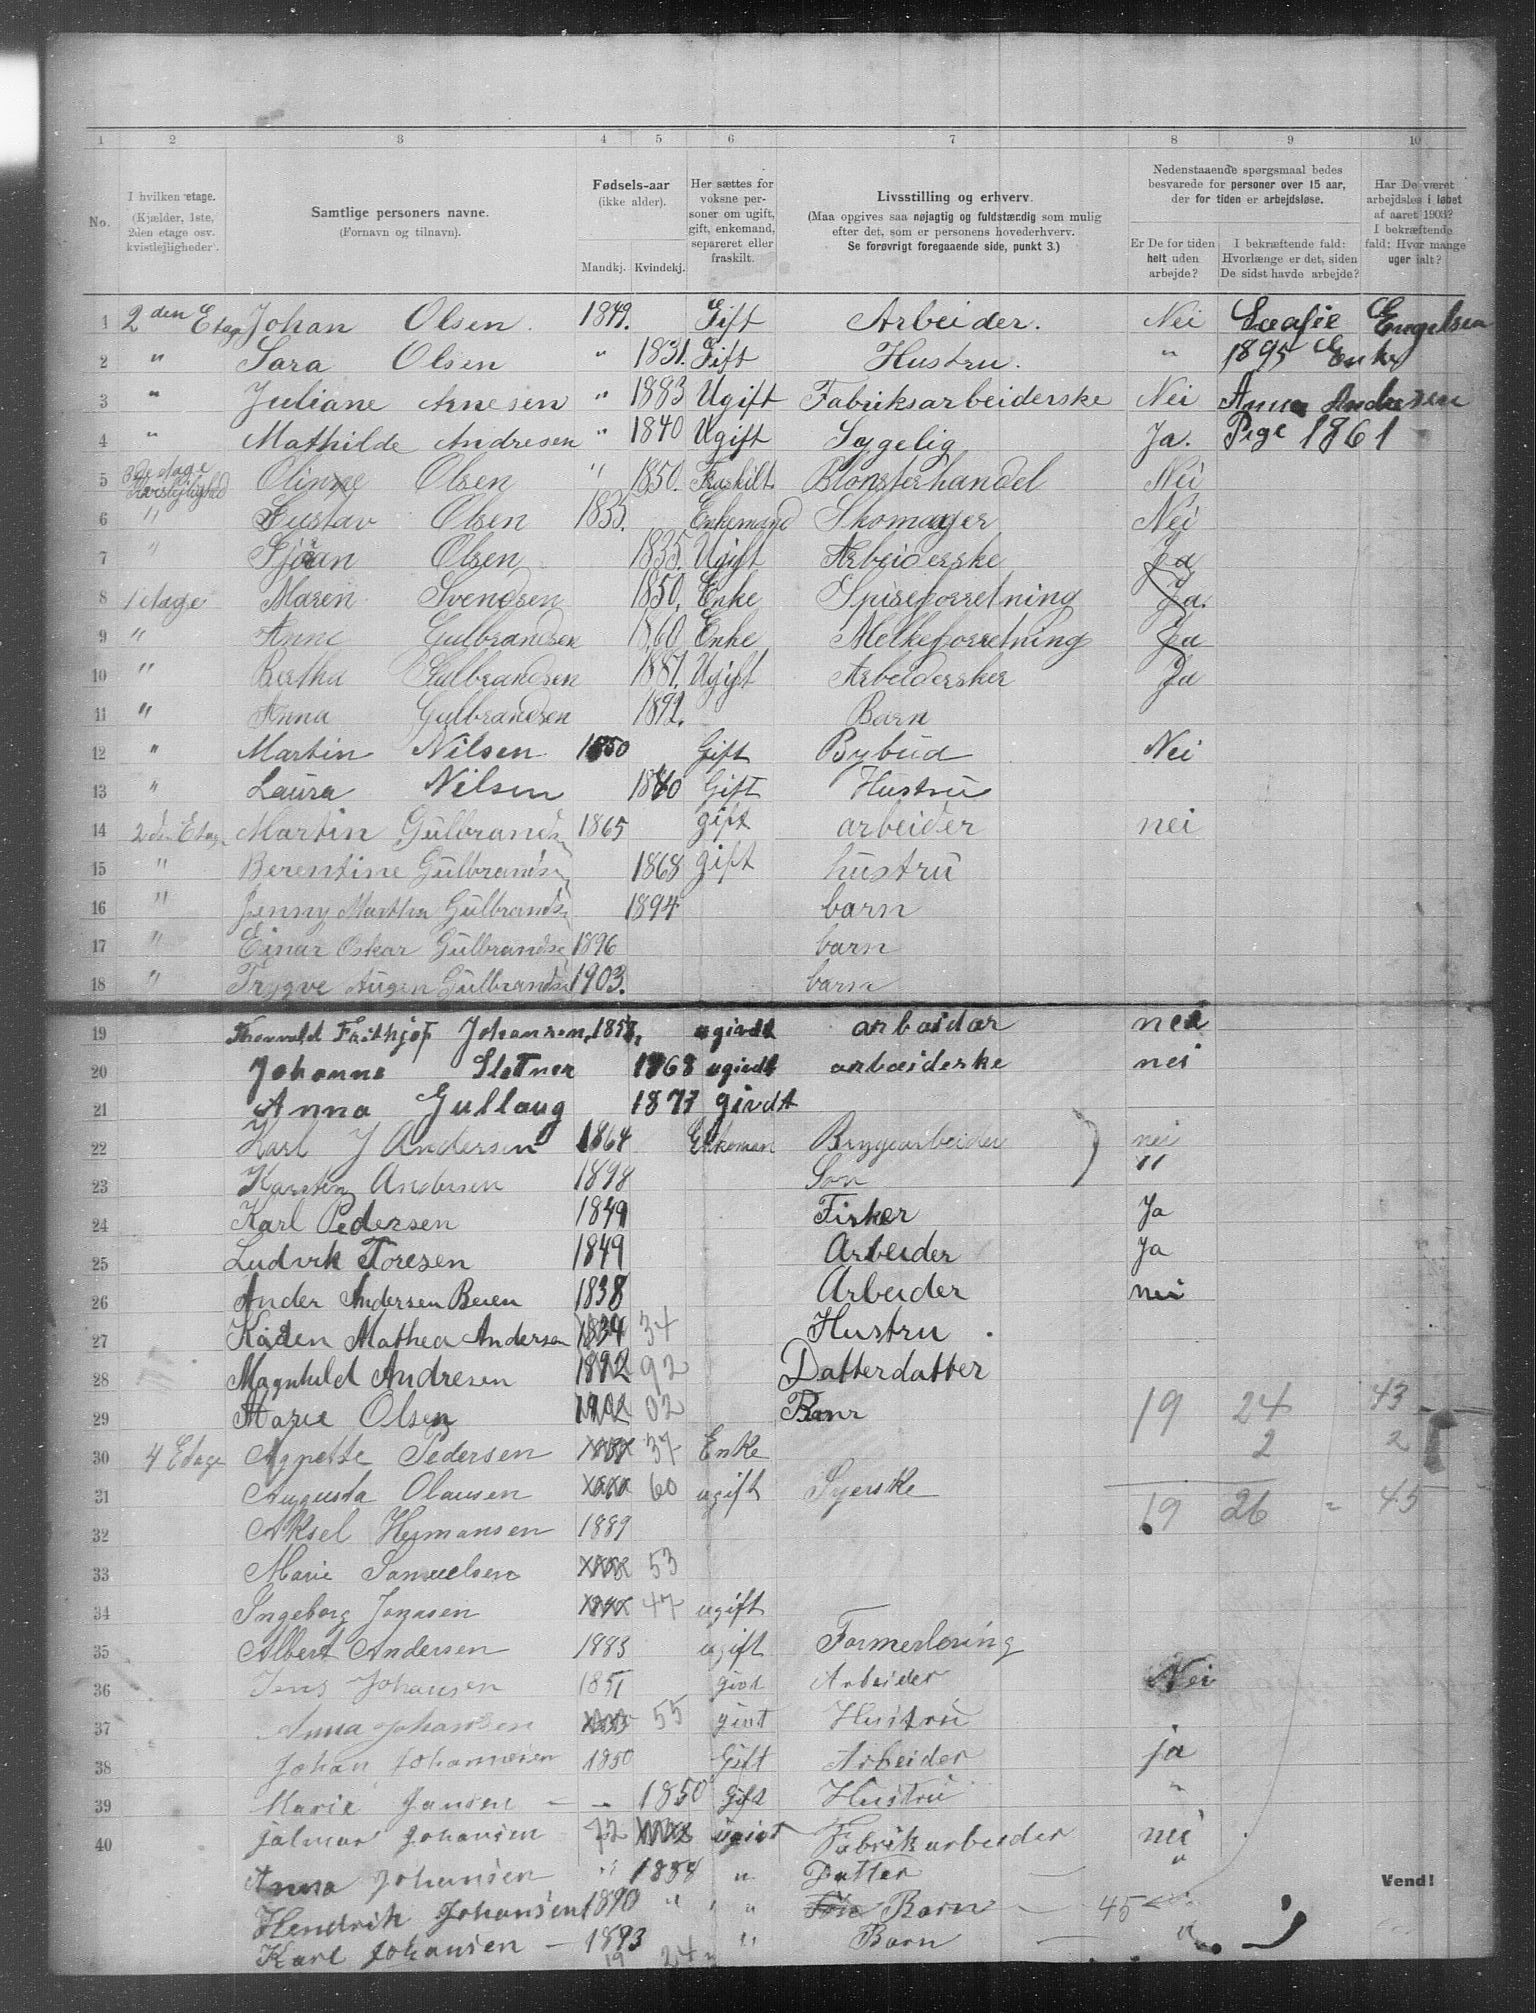 1 2 3 4 5 6 7 8 9 10
No.
I hvilken etage. (Kjælder, 1ste, 2den etage osv. kvistlejligheder).
Samtlige personers navne. (Fornavn og tilnavn).
Fødsels-aar (ikke alder). Mandkj. Kvindekj.
Her sættes for voksne personer om ugift, gift, enkemand, separeret eller fraskilt.
Livsstilling og erhverv. (Maa opgives saa nøjagtig og fuldstændig som mulig efter det, som er personens hovederhverv. Se forøvrigt foregaaende side, punkt 3.)
Nedenstaaende spørgsmaal bedes besvarede for personer over 15 aar, der for tiden er arbejdsløse.
Er De for tiden helt uden arbejde?
I bekræftende fald: Hvorlænge er det, siden De sidst havde arbejde?
Har De været arbejdsløs i løbet af aaret 1903? I bekræftende fald: Hvor mange uger ialt?
1 2den Etag Johan Olsen. 1849. Gift Arbeider. Nei Engelsen
2 " Sara Olsen " 1831. Gift Hustru. " 1895 Enke
3 " Juliane Arnesen " 1883 Ugift Fabriksarbeiderske Nei Anna Andersen
4 " Mathilde Andresen " 1840 Ugift Sygelig Ja. Pige 1861
5 3de etage Kvistlejlighed Olinne Olsen " 1850. Fraskilt Blomsterhandel Nei
6 " Gustav Olsen 1835. Enkemand Skomager Nei
7 " Olsen 1835. Ugift Arbeiderske Ja
8 1 etage Maren Svendsen 1850. Enke Spiseforretning Ja.
9 " Anne Gulbrandsen 1860 Enke Melkeforretning Ja
10 " Bertha Gulbrandsen 1881. Ugift Arbeidersker Ja
11 " Anna Gulbrandsen 1892. Barn
12 " Martin Nilsen 1850 Gift Bybud Nei
13 " Laura Nilsen 1840 Gift Hustru
14 2den Etag Martin Gulbrands 1865 gift arbeider nei
15 " Berentine Gulbrands 1868 gift hustru
16 " Jenny Martha Gulbrands 1894 barn
17 " Einar Oskar Gulbrandse 1896 barn
18 " Trygve Augen Gulbrandse 1903. barn
19 Thorvald Frithjof Johansen, 1858, ugivdt arbaidar nei
20 Johanne Sletner 1868 ugivdt arbaideske nei
21 Anna Gullaug 1877 givdt
22 Karl J Andersen 1864 Enkeman Bryggearbeider nei
23 Karsten Andersen 1898 Søn "
24 Karl Pedersen 1849 Fisker Ja
25 Ludvik Toresen 1849 Arbeider Ja
26 Ander Andersen Beien 1838 Arbeider nei
27 Karen Mathea Andersen 1834 34 Hustru .
28 Magnhild Andresen 1892 92 Datterdatter
29 Marie Olsen 1902 02 19 24 43
2 2
30 4 Etage Agnette Pedersen 1837 37 Enke
31 Augusta Olausen 60 ugift Syerske 19 26 = 45
32 Aksel Hermansen 1889
33 Marie Samuelsen 53
34 Ingeborg 47 ugift
35 Albert Andersen 1883 ugift Formerlering
36 Jens Johansen 1851 givd Arbeider Nei
37 Anna Johansen 55 givt Hustru
38 Johan Johannesen 1850 Gift Arbeider ja
39 Marie Jansen – – 1850 Gift Hustru "
40 Jalmar Johansen 72 ugivt Fabrikarbeider nei
Anna Johansen " 1888 " Datter — "
Hendrik Johansen 1890 " " Barn — 45
Karl Johansen — 1893 " Barn — "
19 24
Vend!